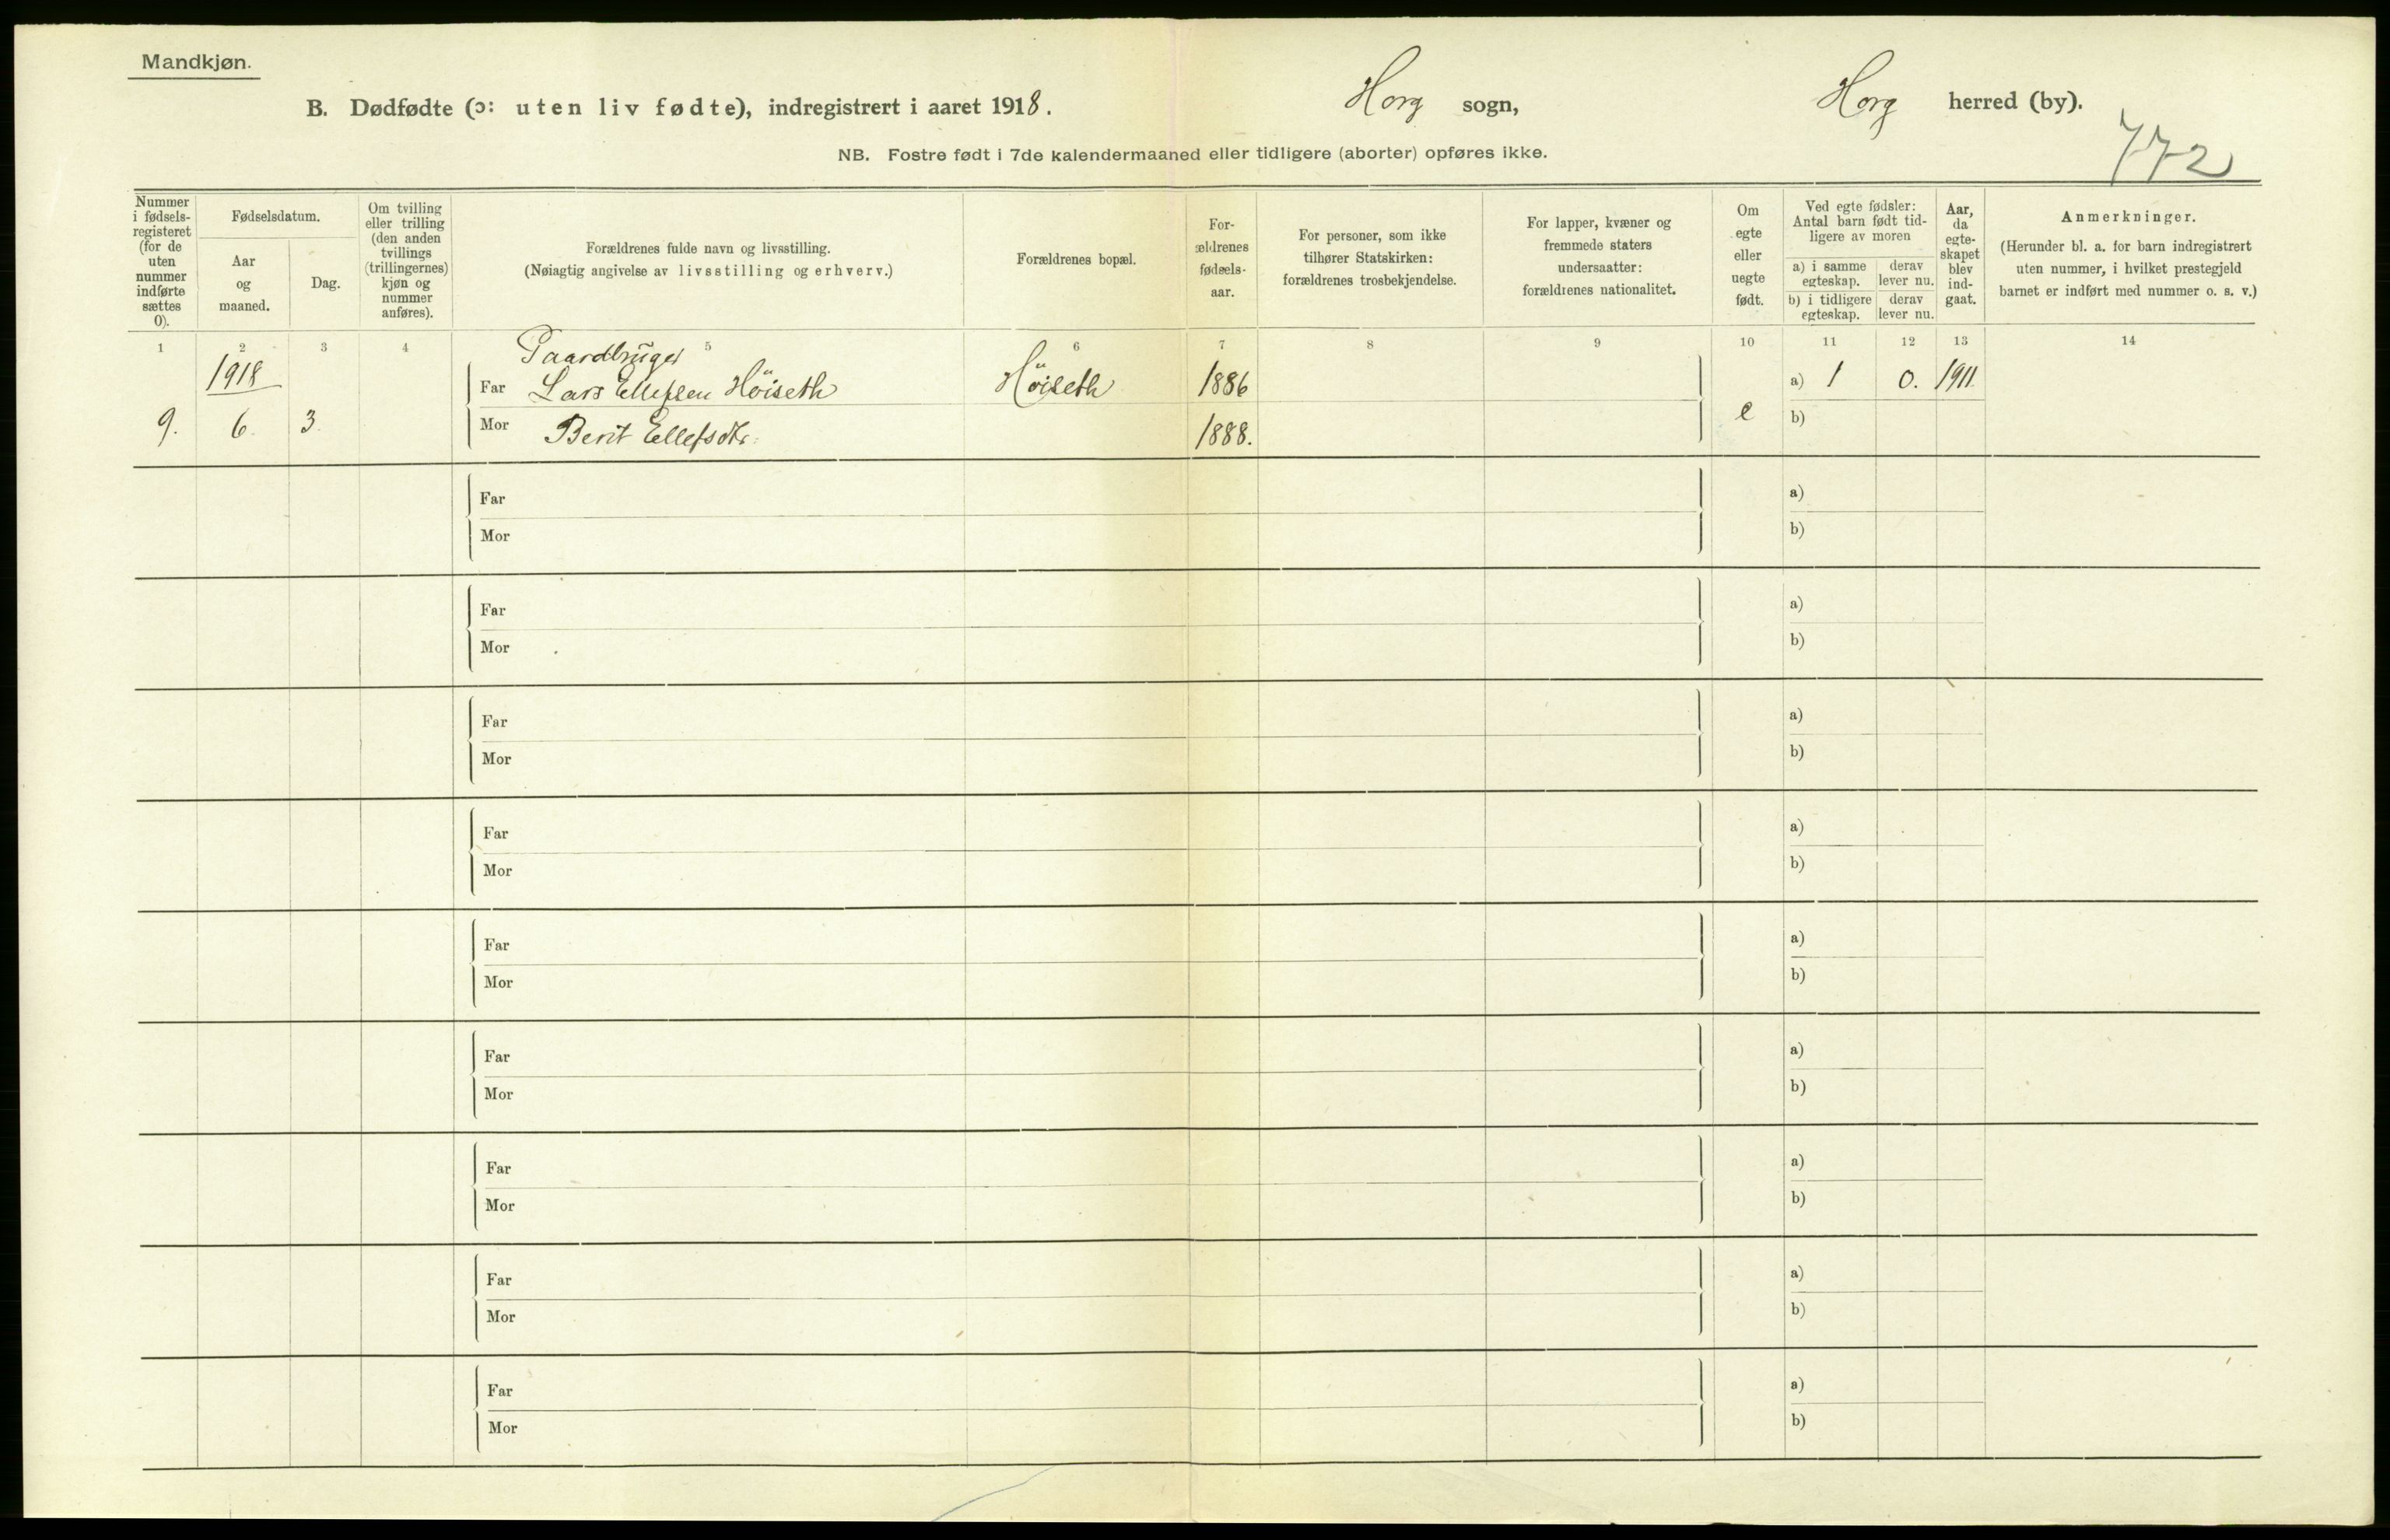 Mandkjøn.
B. Dødfødte (ɔ: uten liv fødte), indregistrert i aaret 1918. Horg sogn, Horg herred (by).
NB. Fostre født i 7de kalendermaaned eller tidligere (aborter) opføres ikke.
772
Nummer
i fødsels-
registeret
(for de
uten
nummer
indførte
sættes
0).
Fødselsdatum.
Aar
og
maaned.
Dag.
Om tvilling
eller trilling
(den anden
tvillings
(trillingernes)
kjøn og
nummer
anføres).
Forældrenes fulde navn og livsstilling.
(Nøiagtig angivelse av livsstilling og erhverv.)
Forældrenes bopæl.
For-
ældrenes
fødsels-
aar.
For personer, som ikke
tilhører Statskirken:
forældrenes trosbekjendelse.
For lapper, kvæner og
fremmede staters
undersaatter:
forældrenes nationalitet.
Om
egte
eller
uegte
født.
Ved egte fødsler:
Antal barn født tid-
ligere av moren
a) i samme
egteskap.
derav
lever nu.
b) i tidligere
egteskap.
derav
lever nu.
Aar,
da
egte-
skapet
blev
ind-
gaat.
Anmerkninger.
(Herunder bl. a. for barn indregistrert
uten nummer, i hvilket prestegjeld
barnet er indført med nummer o. s. v.)
1 2 3 4 5 6 7 8 9 10 11 12 13 14
Gaardbruger
1918 Far Lars Ellefsen Höiseth Höiseth 1886 a) 1 0. 1911.
9. 6. 3. Mor Berit Ellefsdtr. 1888. e b)
Far a)
Mor b)
Far a)
Mor b)
Far a)
Mor b)
Far a)
Mor b)
Far a)
Mor b)
Far a)
Mor b)
Far a)
Mor b)
Far a)
Mor b)
Far a)
Mor b)